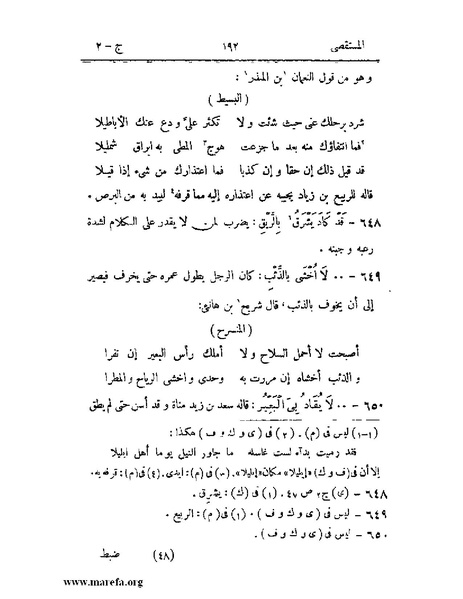 المستقصى ١٩٢ ج - ٢
وهو من قول النعمان ¹بن المنذر¹ :
( البسيط )
شرد برحلك عنى حيث شئت ولا تكثر علىَّ ودع عنك الأباطيلا
فما انتفاؤك منه بعد ما جزعت هوج المطى به ابراق شمليلا
قد قيل ذلك إن حقا و إن كذبا فما اعتذارك من شىء إذا قيلا
قاله للربيع بن زياد يجيبه عن اعتذاره إليه مما قرفه لبيد به من البرص .
٦٤٨ - قَدْ كَادَ يَشْرَقُ¹ بِالرِّيْقِ : يضرب لمن لا يقدر على الكلام لشدة
رعبه و جبنه .
٦٤٩ - ٠٠ لَا أُخْشَى بِالذِّئْبِ : كان الرجل يطول عمره حتى يخرف فيصير
إلى أن يخوف بالذئب ، قال شريح¹ بن هانئ :
( المنسرح )
أصبحت لا أحمل السلاح ولا أملك رأس البعير إن نفرا
و الذئب أخشاه إن مررت به وحدى و اخشى الرياح و المطرا
٦٥٠ - ٠٠ لَا يُقَادُ بِىَ الْبَعِيْرُ : قاله سعد بن زيد مناة و قد أسن حتى لم يطق
(١-١) ليس فى (م) . (٢) فى (ى و ك و ف) هكذا :
فقد رميت بداء لست غاسله ما جاور النيل يوما أهل ابليلا
إلا أن فى (ف و ك) «إبليلا» مكان «إبليلا» . (٣) فى (م) : ايدى . (٤) فى (م) : قرفه به .
٦٤٨ - (ى) ج ٢ ص ٤٧ . (١) فى (ك) : يشرق .
٦٤٩ - ليس فى (ى و ك و ف) . (١) فى (م) : الربيع .
٦٥٠ - ليس فى (ى و ك و ف) .
(٤٨) ضبط
www.marefa.org